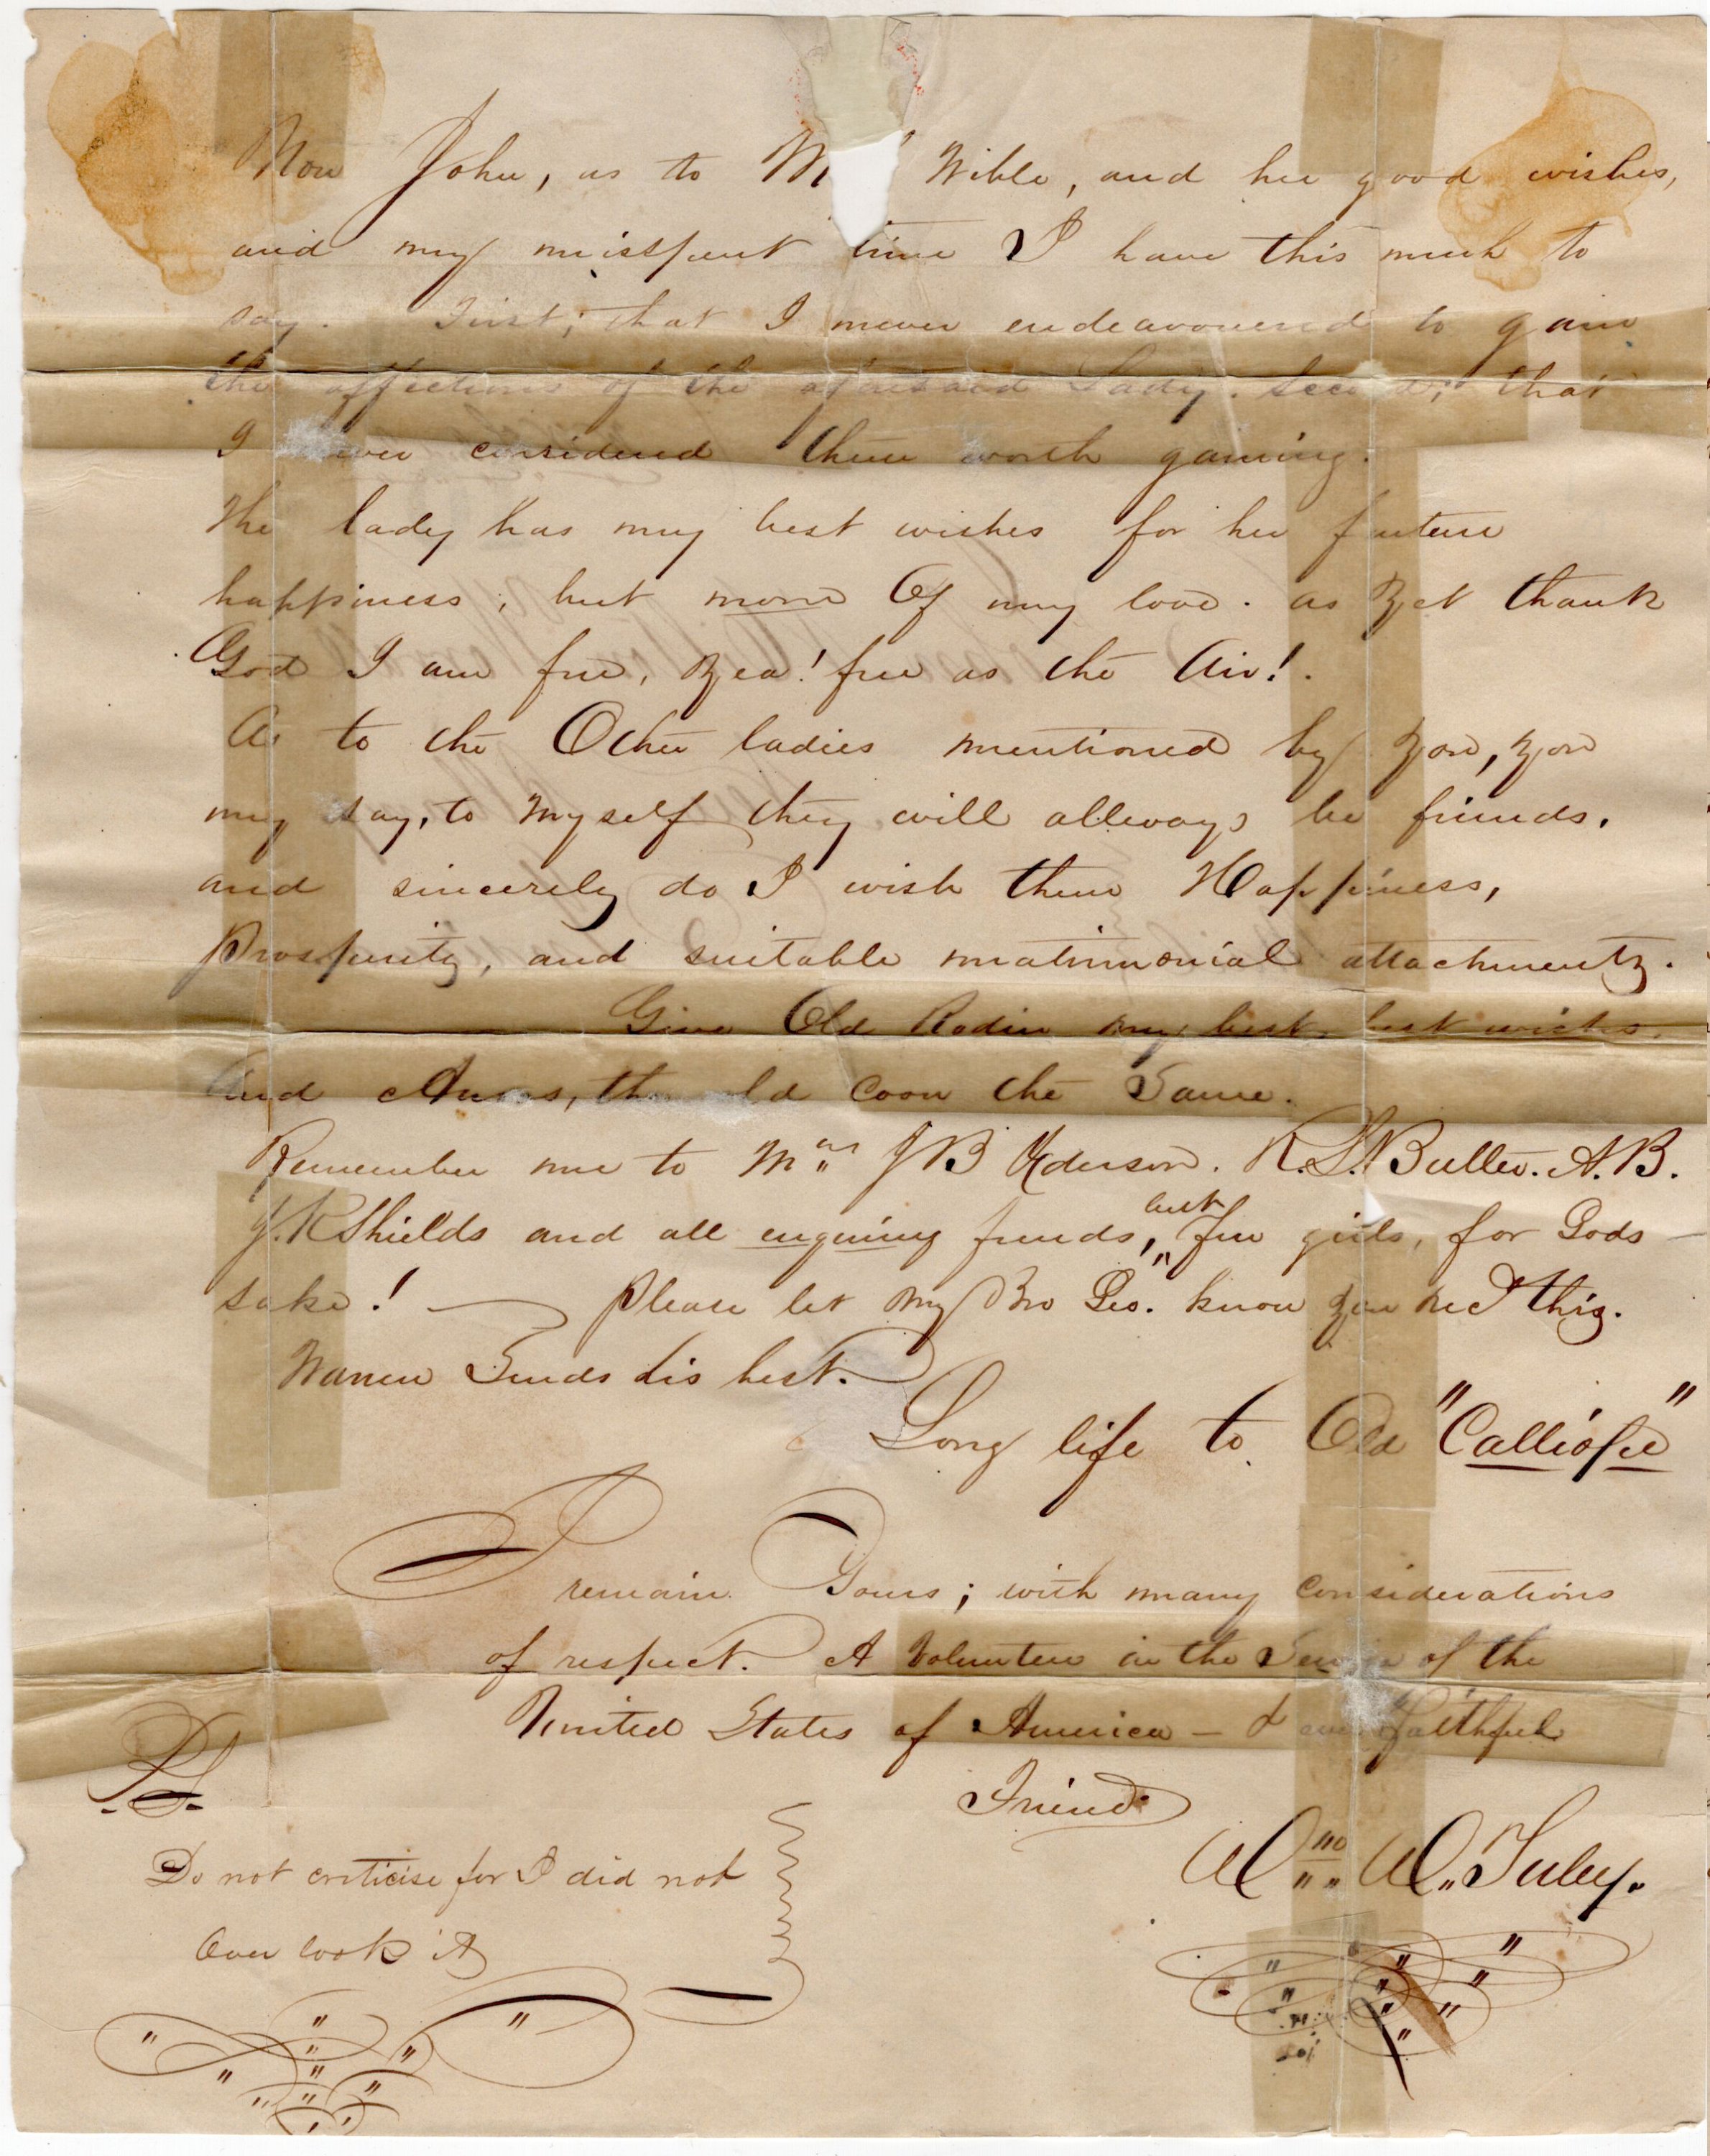 Now John, as to M Wible, and her good wishes,
and my misspent time I have this much to
say. First; that I never endeavoured to gain
the affections of the aforesaid Lady. Second; that
I never considered them worth gaining.
The lady has my best wishes for her future
happiness, but none Of my love. as yet thank
God I am free, yea! free as the Air!.
As to the Other ladies mentioned by you, you
may say, to myself they will allways be friends.
and sincerely do I wish them Happiness,
Prosperity, and suitable matrimonial attachments.
Give Old Rodin my best, best wishes.
And Amos, the old Coon the Same.
Remember me to J B R. S. Butler. A. B.
J. R Shields and all enquiring friends, but few girls, for Gods
sake! Please let my Bro Geo. know you recd this.
Warren Sends his best.
Long life to Old "Calliope"
I remain Yours; with many Considerations
of respect. A Volunteer in the Service of the
United States of America — & faithful
Friend
PS
Do not criticise for I did not
Over look it
Wm W. Tuley.